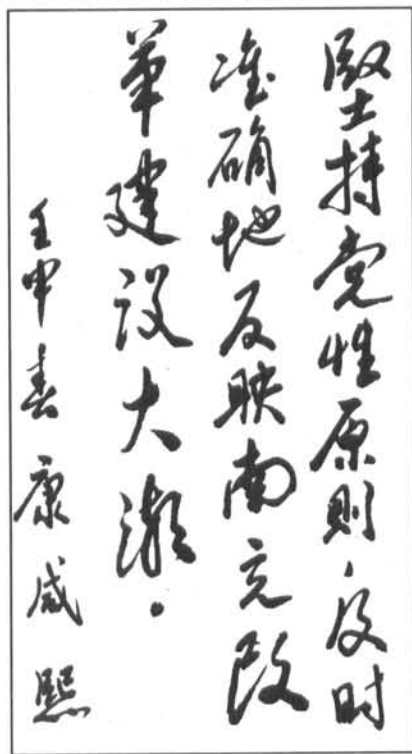 坚持党性原则，及时
准确地反映南充改
革建设大潮。
壬申春 康咸熙